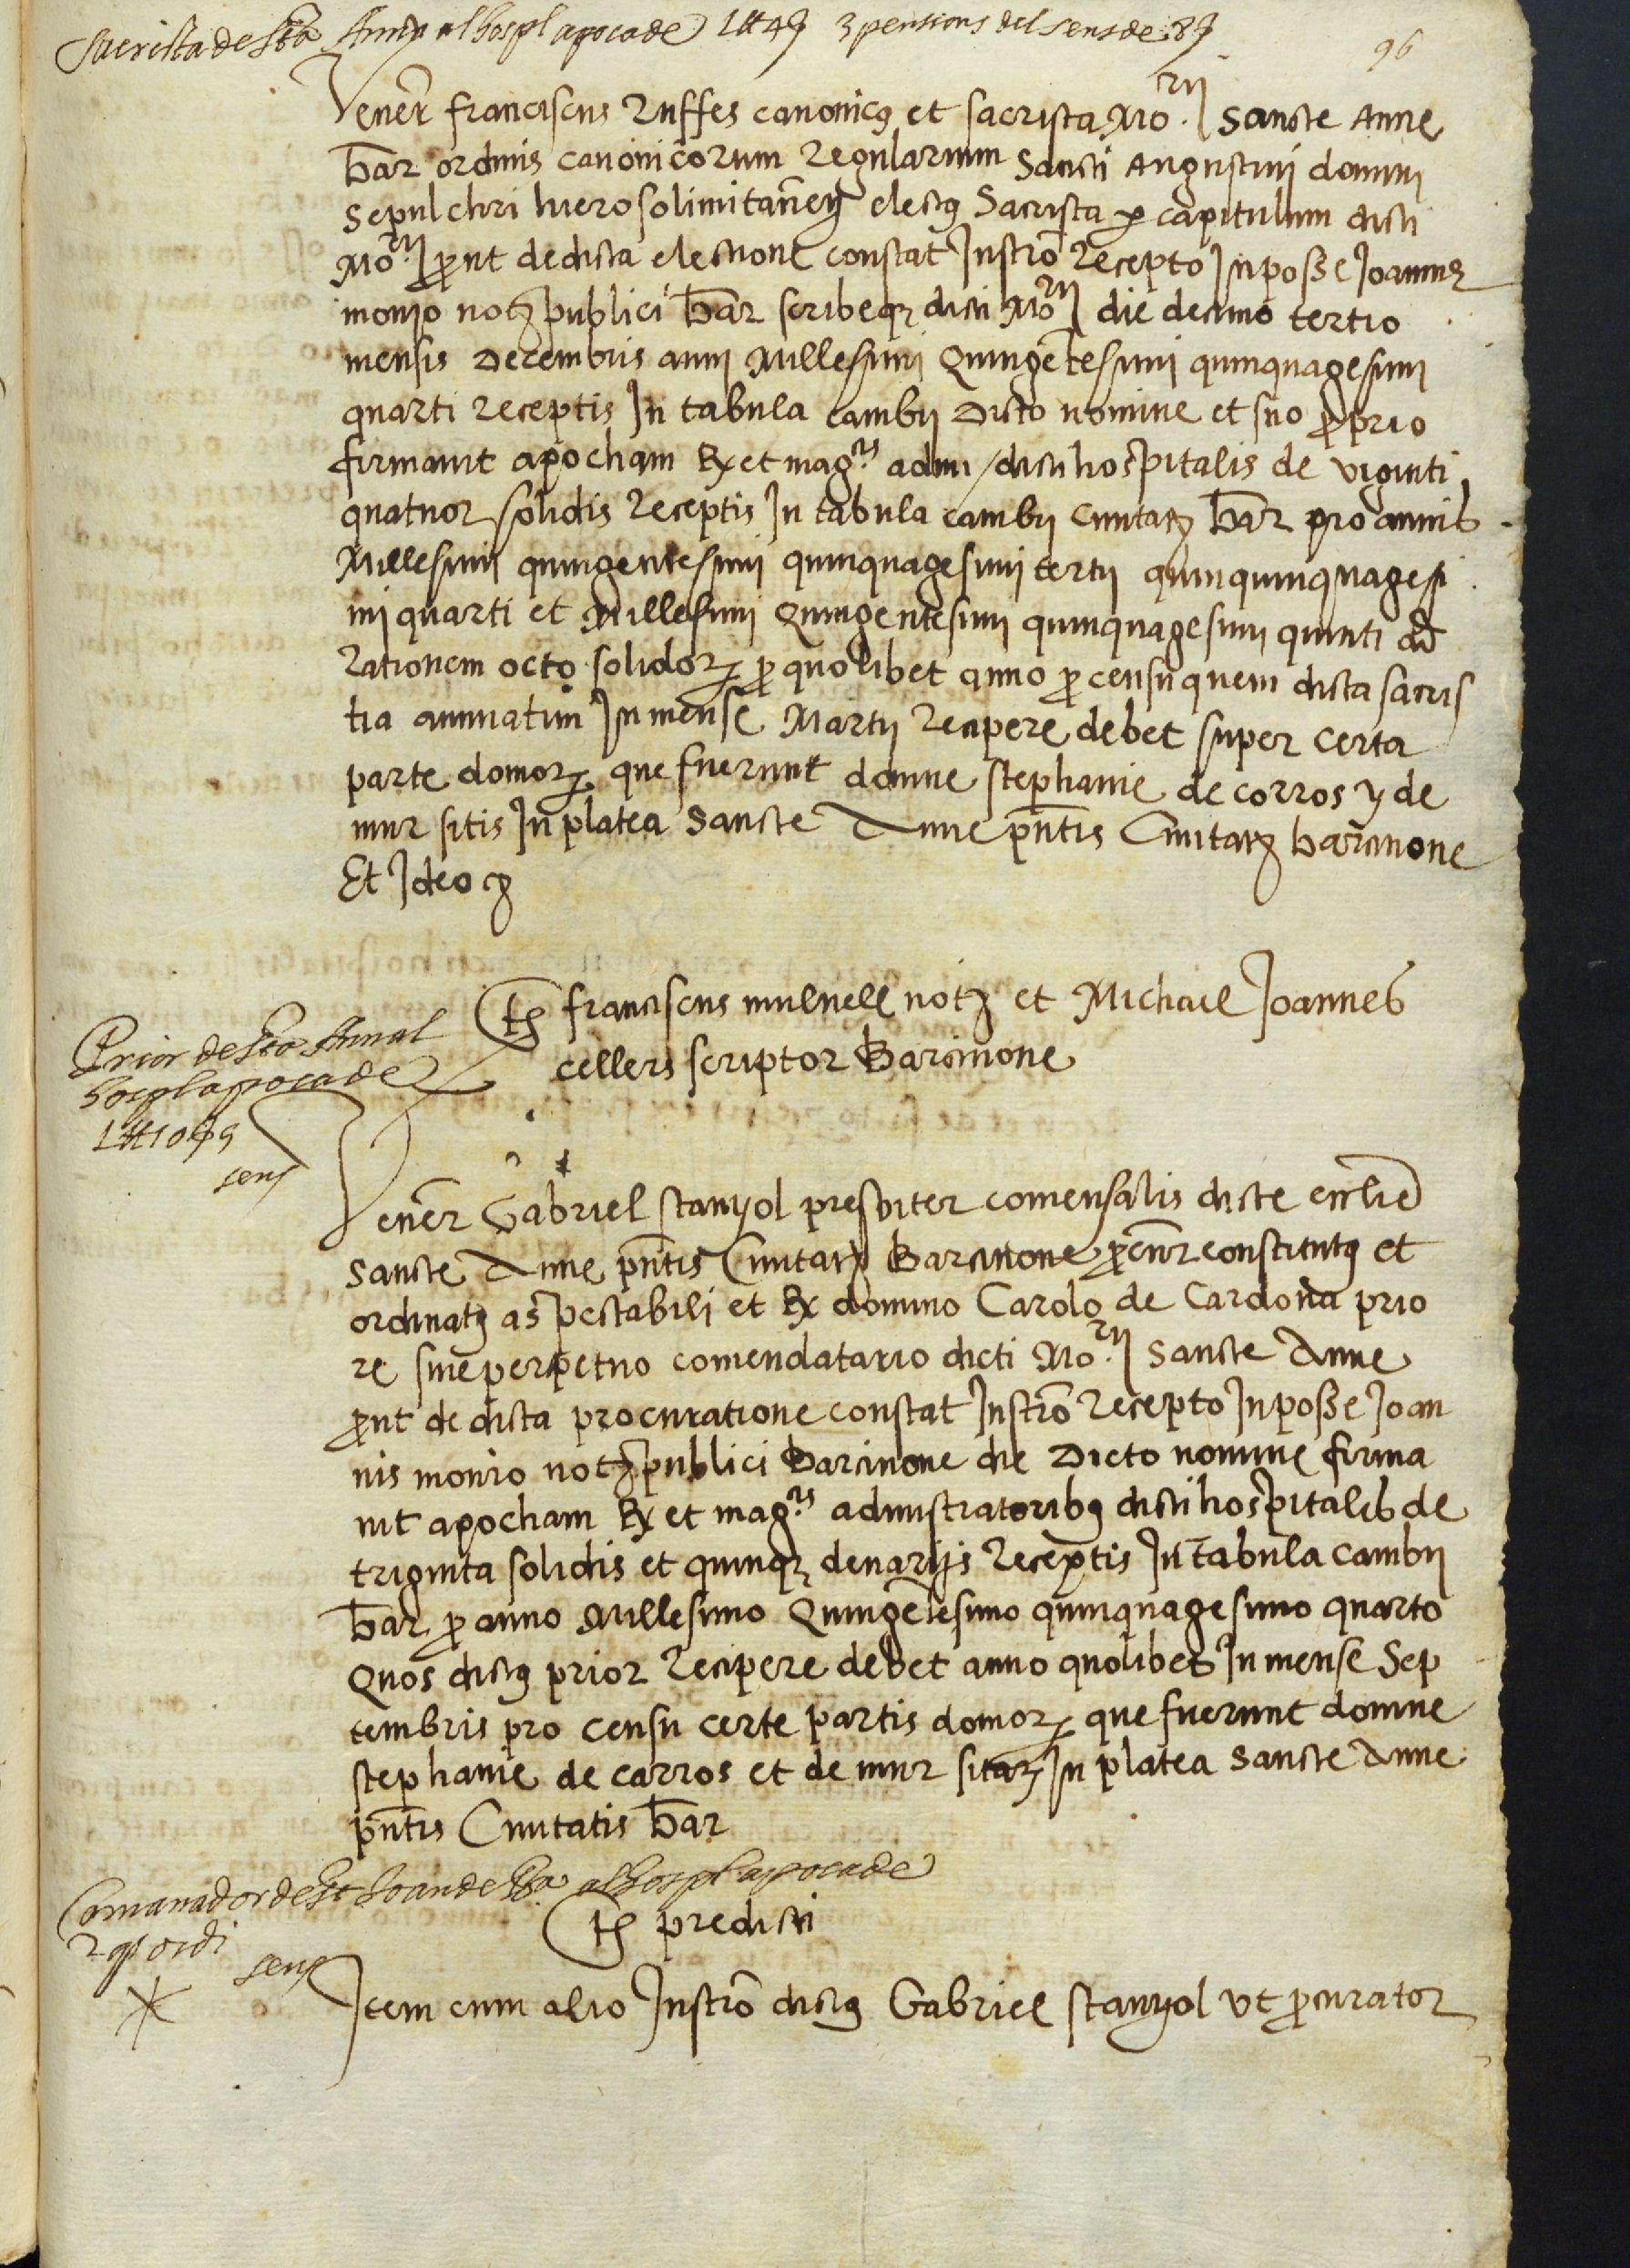 Sacrista de Sta Anna al hospl apoca de 1 ₶ 4 s 3 pensions del sens de 8 s
96
Vener franciscus Ruffes canonicus et sacrista Morii Sancte Anne
bar ordinis canonicorum regularium Sancti Augustini domini
Sepulchri hierosolimitaneņ electus Sacrista per capitulum dicti
Morii prout de dicta electione constat Instro recepto In posse Joannis
monjo notz publici bar scribeqz dicti Morii die decimo tertio
mensis Decembris anni Millesimi Quingetesimi quinquagesimi
quarti receptis In tabula cambij Dicto nomine et suo proprio
firmavit apocham Rx et magcis admi / dicti hospitalis de viginti
quatuor solidis receptis In tabula cambij Civitatz bar pro annis
Millesimi quingentesimi quinquagesimi tertij quinquinquagesi
mi quarti et Millesimi Quingentesimi quinquagesimi quinti ad
rationem octo solidorz pro quolibet anno pro censu quem dicta sacris
tia annuatim In mense Martij recipere debet super certa
parte domorz que fuerunt domne stephanie de corros y de
mur sitis In platea Sancte Anne pntis Civitatz barcinone
Et Ideo cz
Ts franciscus mulnell notz et Michael Joannes
cellers scriptor Barcinone
Prior de Sta Anna al
hospl apoca de
1 ₶ 10 s 5
sens
Vener Gabriel stanyol presbiter comensalis dicte ecclie
Sancte Anne pntis Civitatz Barcinone procur constitutus et
ordinatus a spectabili et Rx domino Carolo de Cardona prio
re sive perpetuo comendatario dicti Morii Sancte Anne
prout de dicta procuratione constat Instro recepto In posse Joan
nis monio notz publici Barcinone die Dicto nomine firma
vit apocham Rx et magcis administratoribus dicti hospitalis de
triginta solidis et quinqz denarijs receptis In tabula cambij
bar pro anno Millesimo Quingetesimo quinquagesimo quarto
Quos dictus prior recipere debet anno quolibet In mense Sep
tembris pro censu certe partis domorz que fuerunt domne
stephanie de carros et de mur sitarz In platea Sancte Anne
pntis Civitatis bar
Comanador de St Joan de Ba al hospl apoca de
sens
Ts predicti
Item cum alio Instro dictus Gabriel stanyol ut procurator